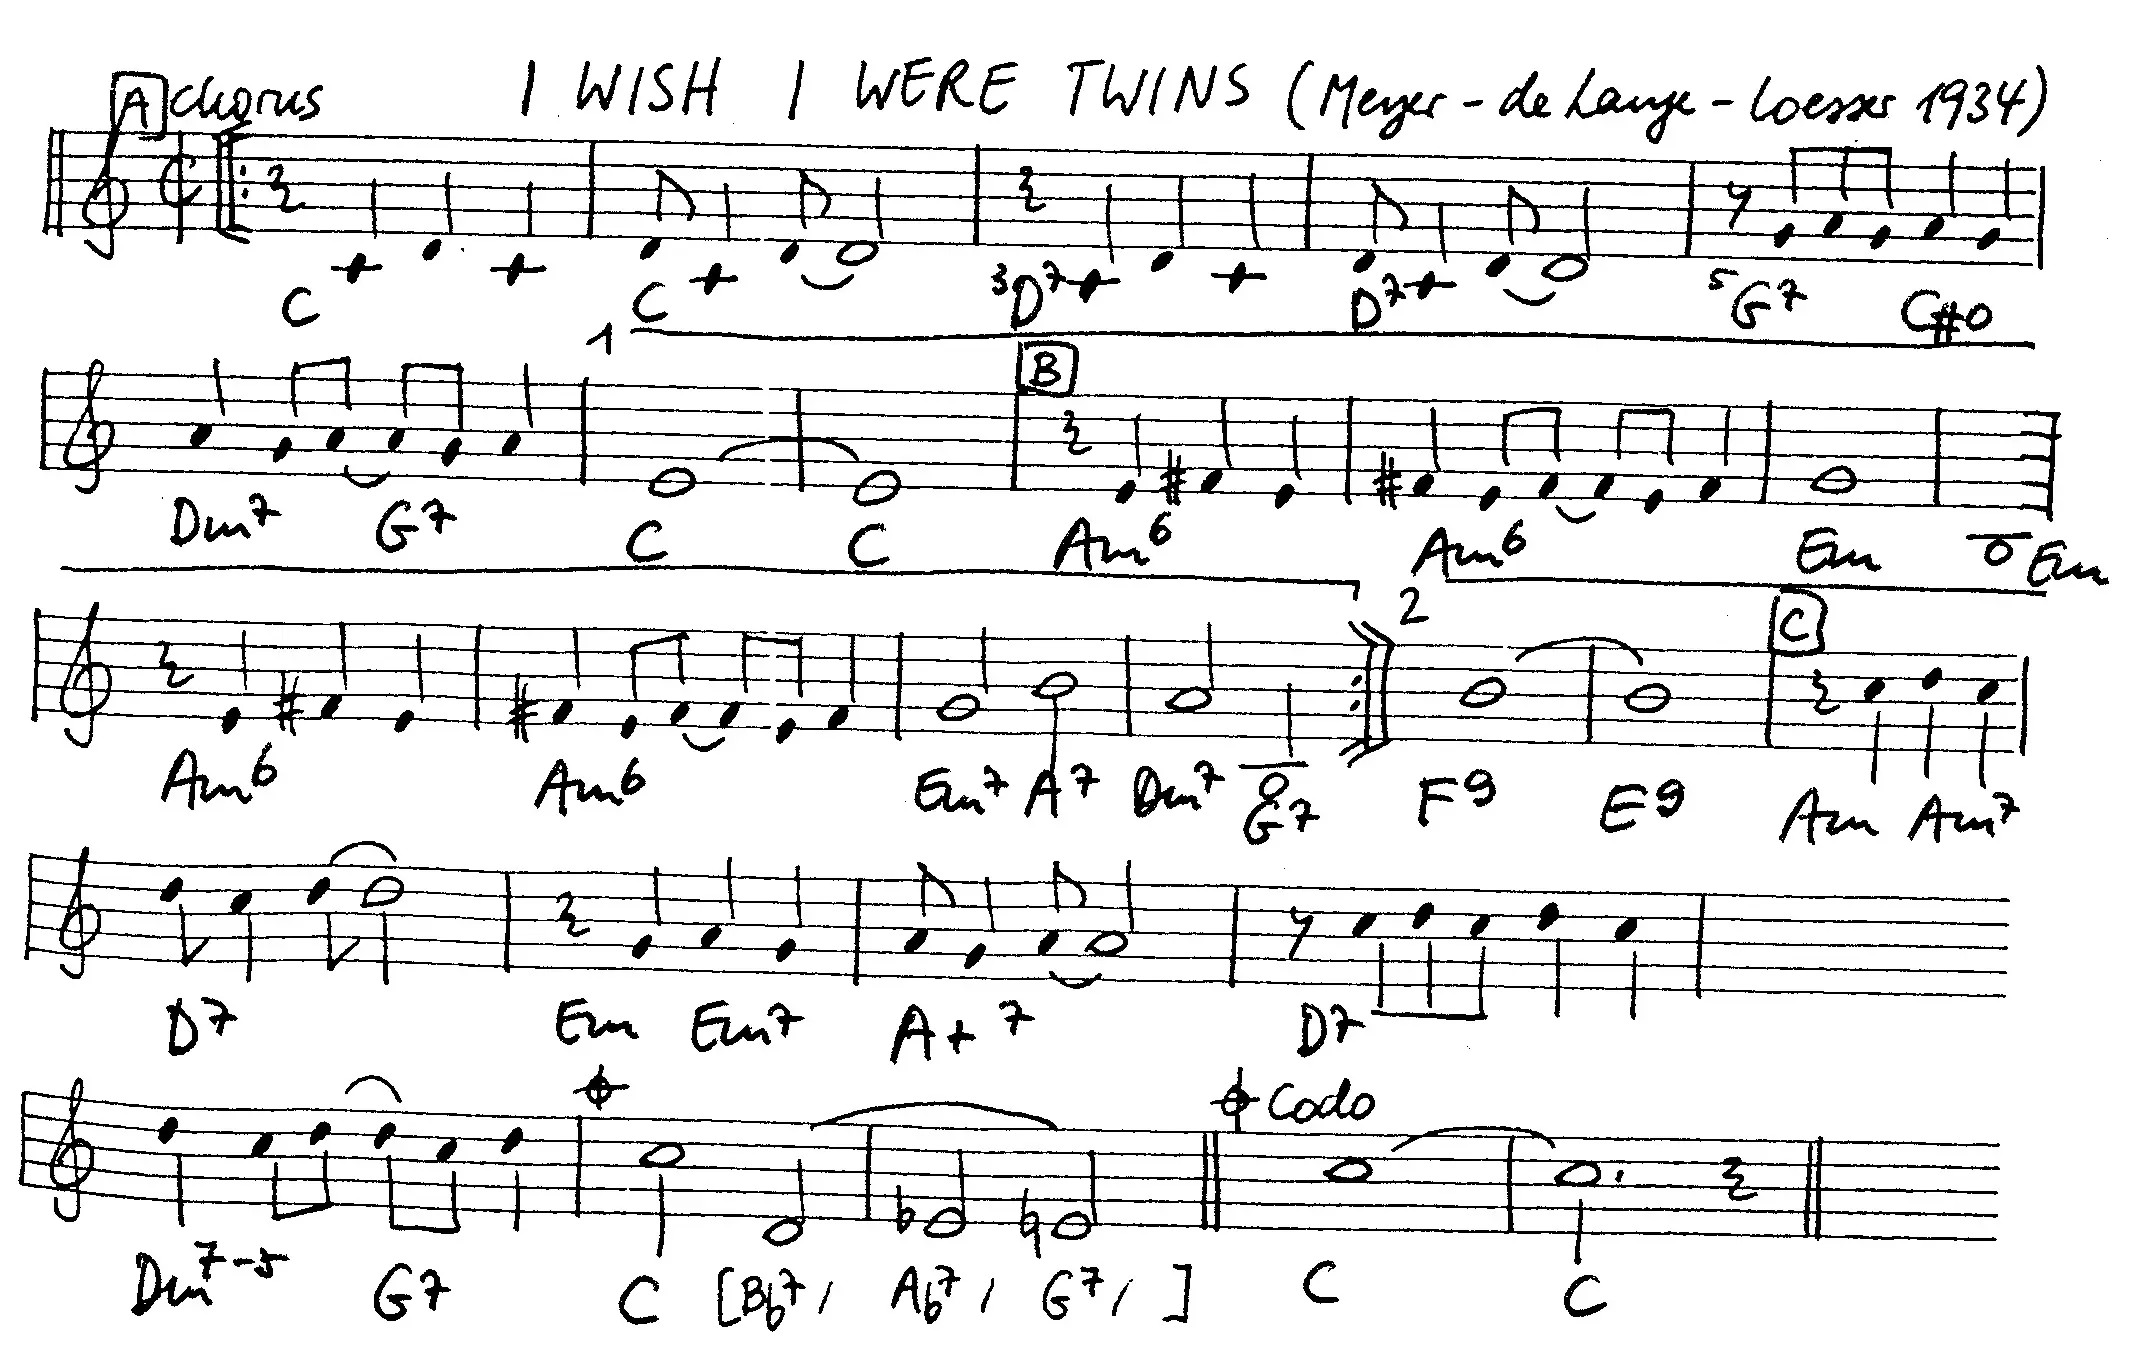 A Chorus I WISH I WERE TWINS (Meyer - de Lange - Loesser 1934)
C C 3 D7 D7 5 G7 C#o
1
B
Dm7 G7 C C Am6 Am6 Em Em
2
C
Am6 Am6 Em7 A7 Dm7 G7 F9 E9 Am Am7
D7 Em Em7 A+7 D7
Coda
Dm7-5 G7 C [Bb7, Ab7, G7, ] C C